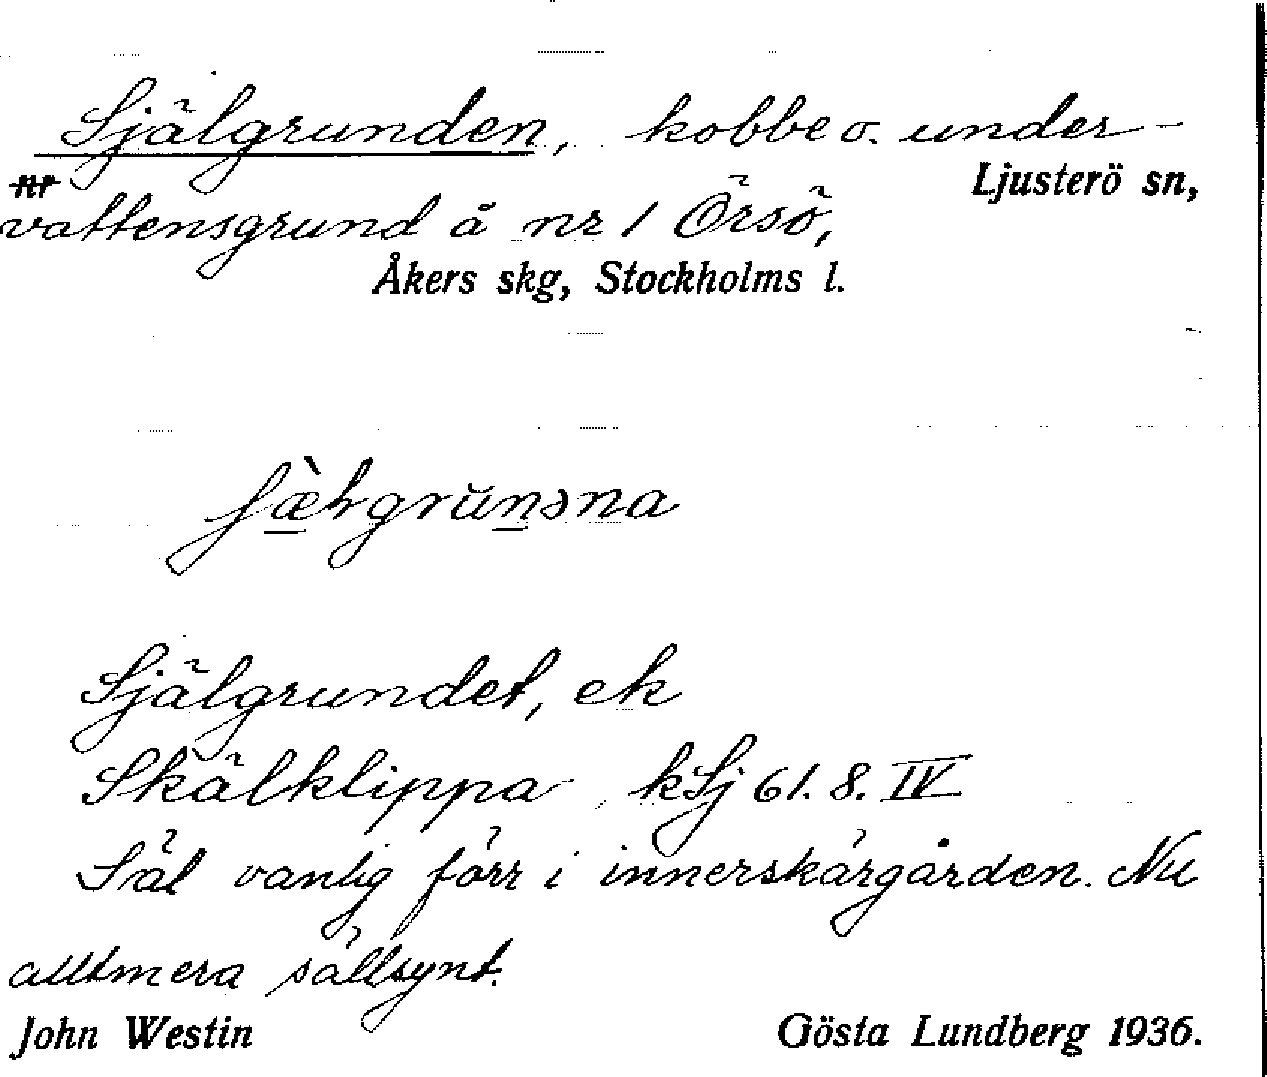 Själgrunden, kobbe o. under-
Ljusterö sn,
vattensgrund å nr 1 Örsö,
Åkers skg, Stockholms l.
Själgrundet, ek
Skälklippa kSj 61. 8. IV
Säl vanlig förr i innerskärgården. Nu
alltmera sällsynt.
John Westin Gösta Lundberg 1936.